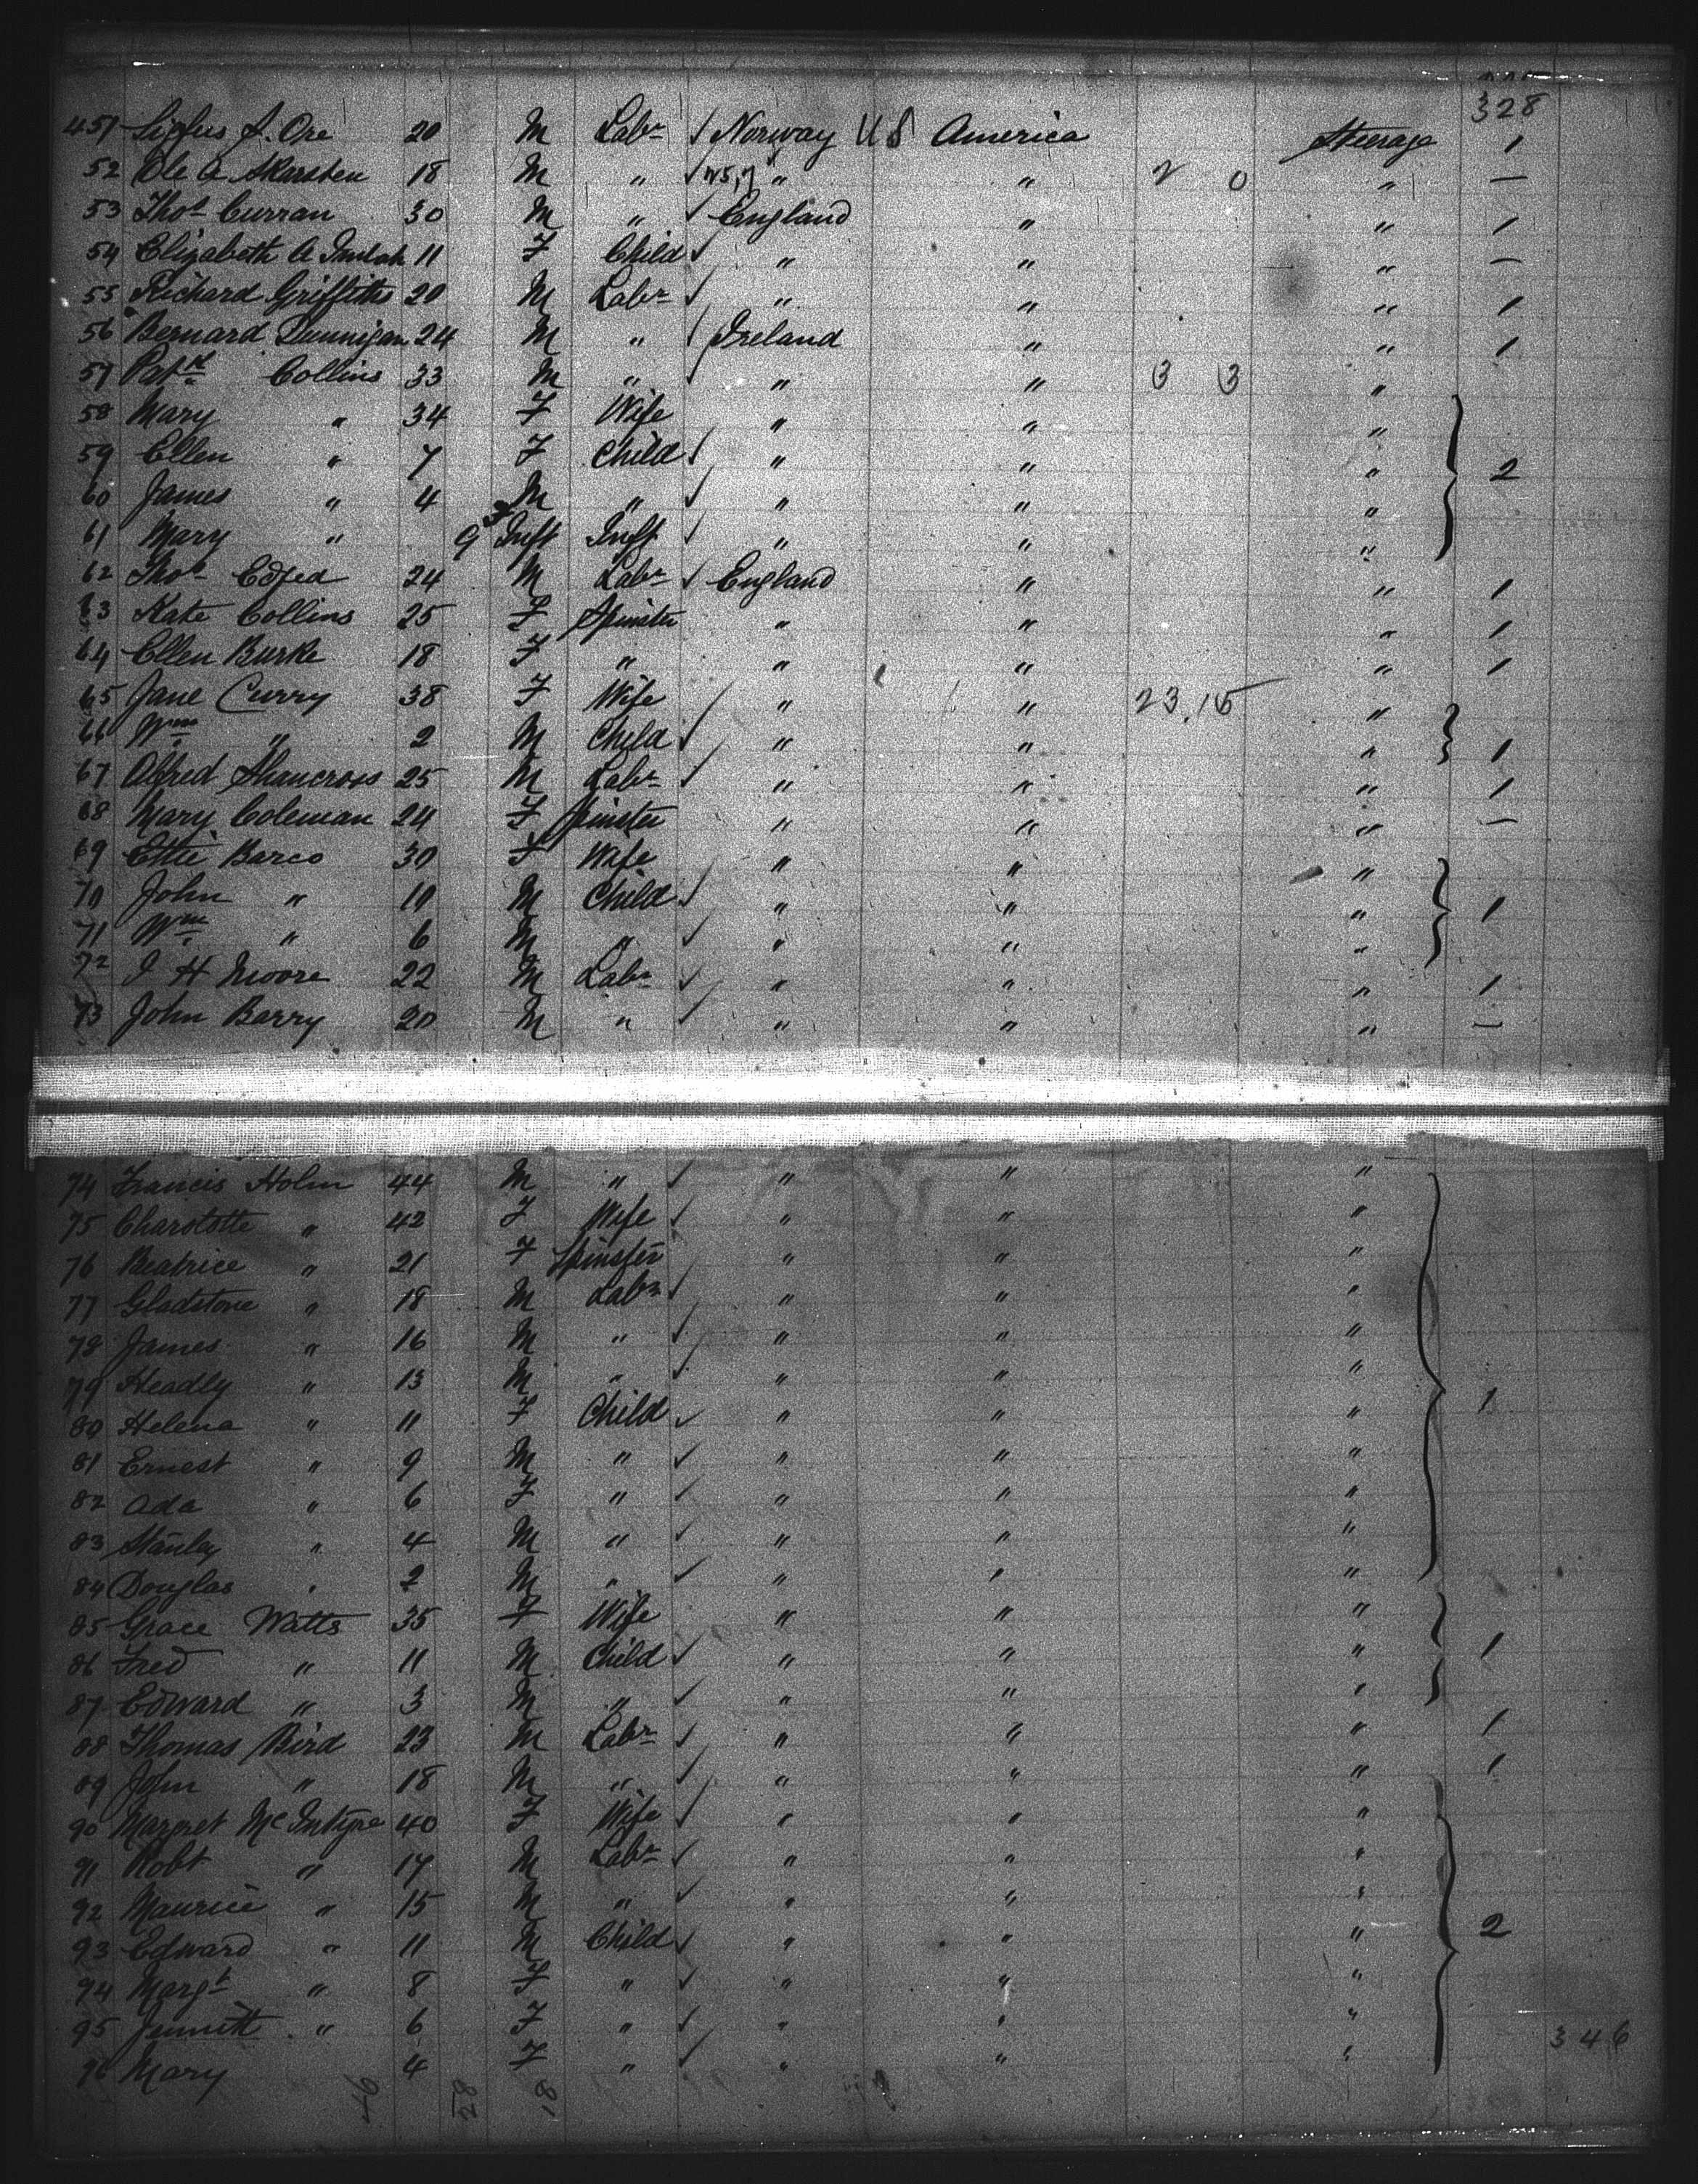 328
451 J. Ore 20 M Labr ✓ Norway U S America Steerage 1
52 Ole A Skarsten 18 M " ✓ " " 2 0 " —
53 Thos Curran 30 M " ✓ England " " 1
54 Elizabeth A 11 F Child ✓ " " " —
55 Richard Griffiths 20 M Labr ✓ " " " 1
56 Bernard Dunnigan 24 M " ✓ Ireland " " 1
57 Patk Collins 33 M " ✓ " " 3 3 "
58 Mary " 34 F Wife " " "
59 Ellen " 7 F Child ✓ " " " 2
60 James " 4 M " ✓ " " "
61 Mary " 9 F Inft Inft ✓ " " "
62 Thos 24 M Labr ✓ England " " 1
63 Kate Collins 25 F Spinster " " " 1
64 Ellen Burke 18 F " " " " 1
65 Jane Curry 38 F Wife ✓ " " 23.15 "
66 Wm " 2 M Child ✓ " " " 1
67 Alfred Shancross 25 M Labr ✓ " " " 1
68 Mary Coleman 24 F Spinster " " " —
69 Ettie Barco 30 F Wife " " "
70 John " 10 M Child ✓ " " " 1
71 Wm " 6 M " ✓ " " "
72 J H Moore 22 M Labr ✓ " " " 1
73 John Barry 20 M " ✓ " " " —
74 Francis Holm 44 M " ✓ " " "
75 Charolotte " 42 F Wife ✓ " " "
76 Beatrice " 21 F Spinster " " "
77 Gladstone " 18 M Labr ✓ " " "
78 James " 16 M " ✓ " " "
79 Headly " 13 M " ✓ " " "
80 Helena " 11 F Child ✓ " " " 1
81 Ernest " 9 M " ✓ " " "
82 Ada " 6 F " ✓ " " "
83 Stanley " 4 M " ✓ " " "
84 Douglas " 2 M " ✓ " " "
85 Grace Watts 35 F Wife " " "
86 Fred " 11 M Child ✓ " " " 1
87 Edward " 3 M " ✓ " " "
88 Thomas Bird 23 M Labr ✓ " " " 1
89 John " 18 M " ✓ " " " 1
90 Margret McIntyre 40 F Wife ✓ " " "
91 Robt " 17 M Labr ✓ " " "
92 Maurice " 15 M " ✓ " " "
93 Edward " 11 M Child ✓ " " " 2
94 Margt " 8 F " ✓ " " "
95 Jennett " 6 F " ✓ " " "
96 Mary 4 F " ✓ " " "
346